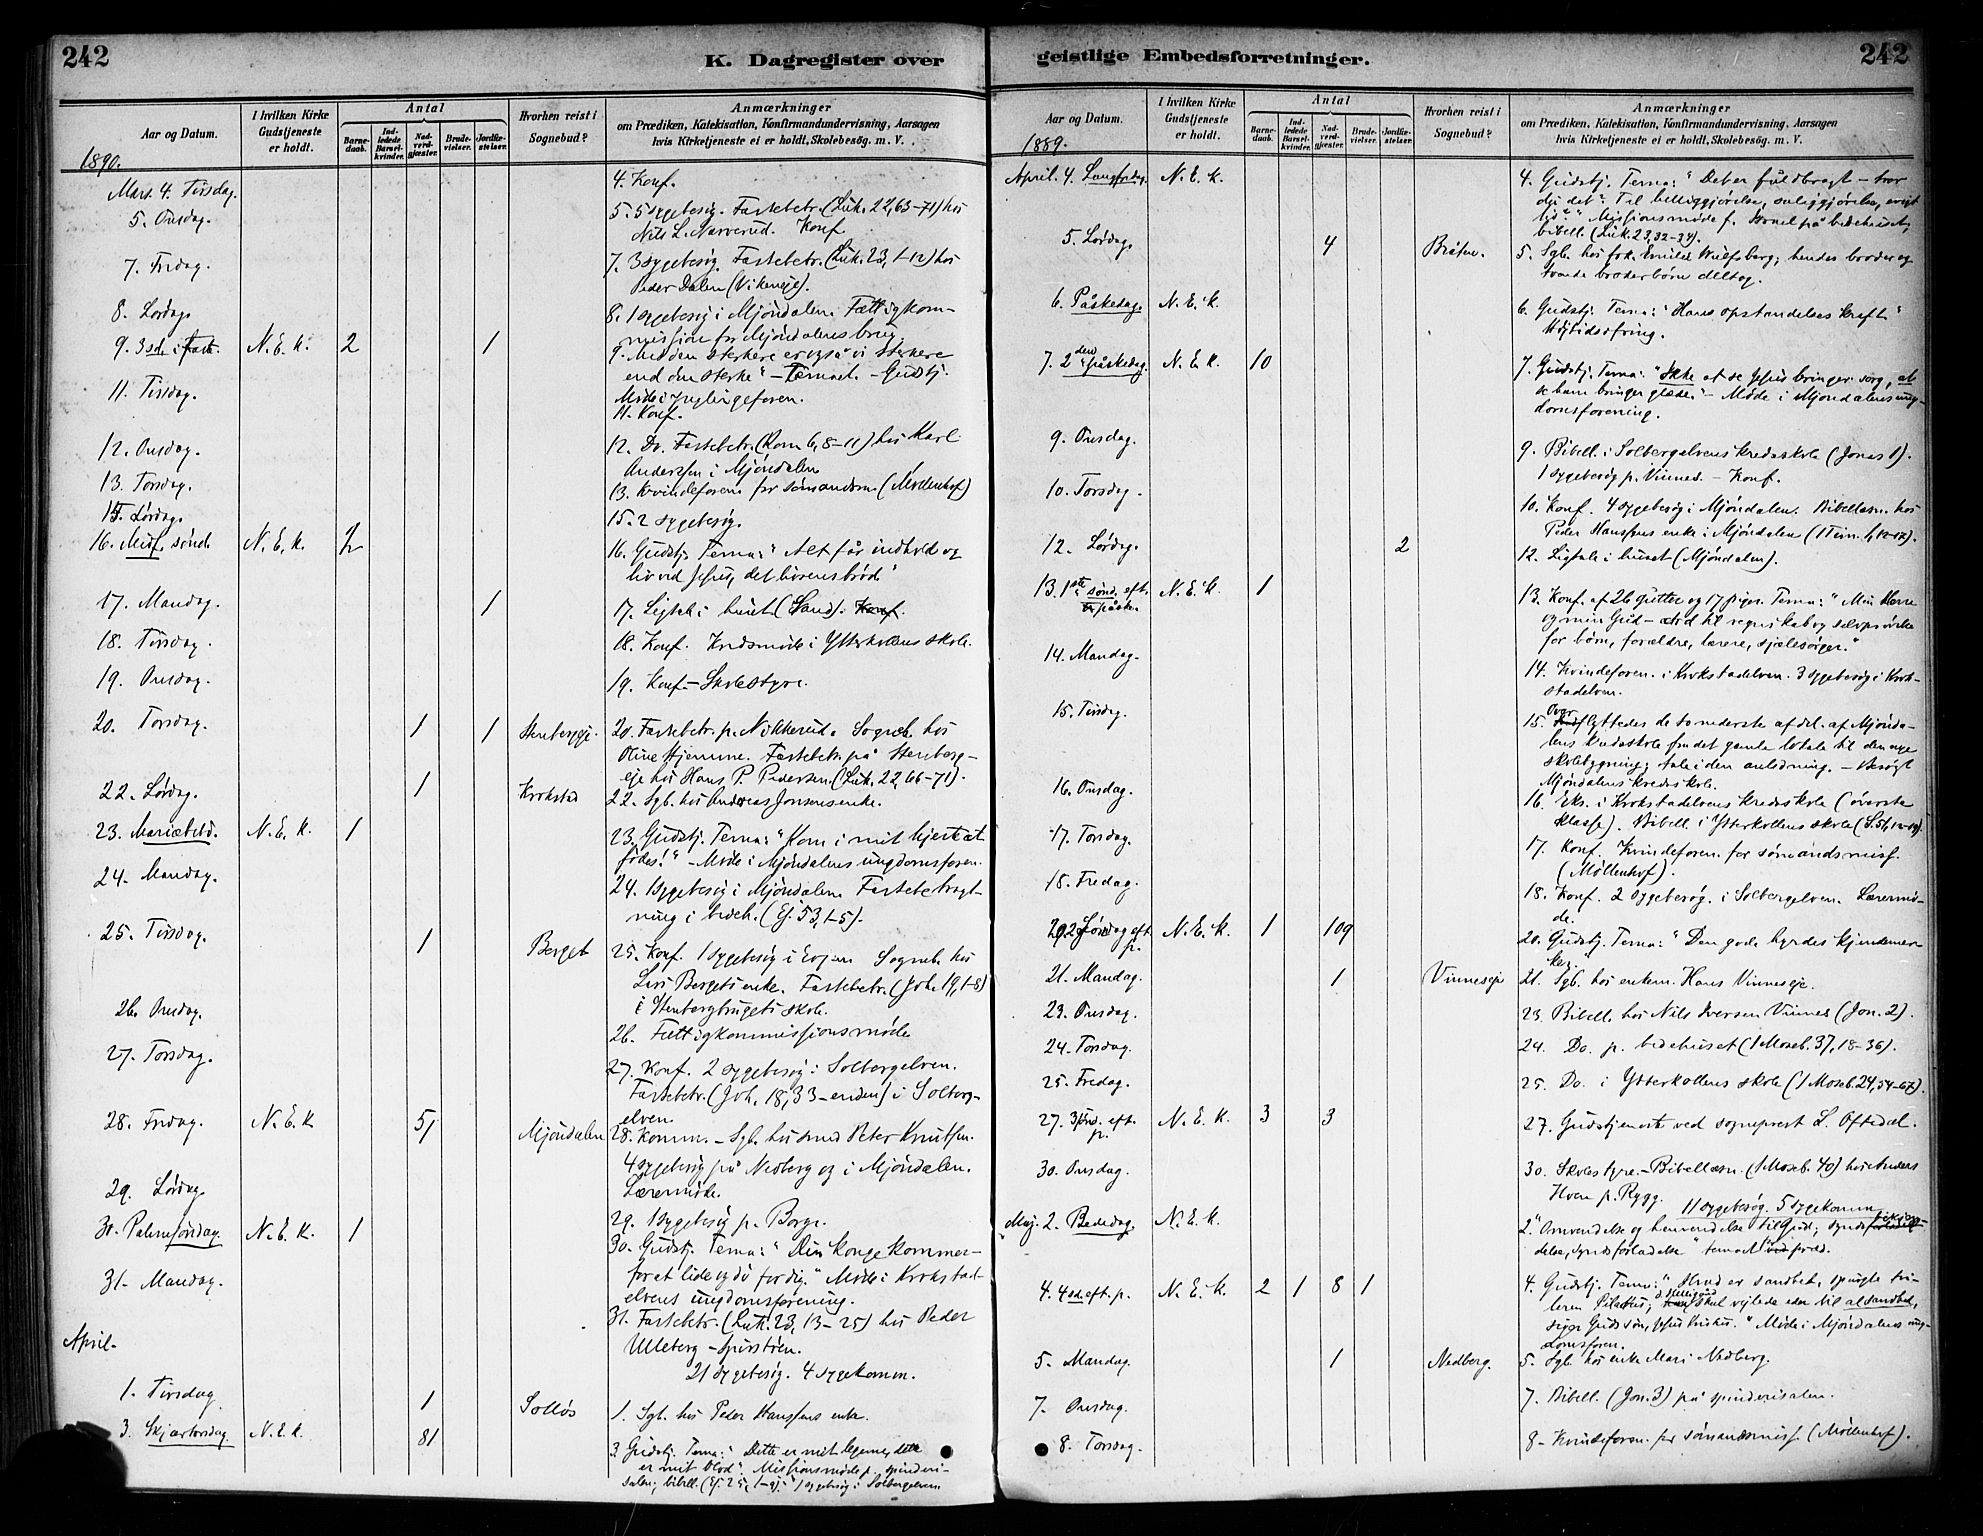 242
K. Dagregister over
Aar og Datum.
I hvilken Kirke Gudstjeneste er holdt.
Antal
Barnedaab.
Indledede Barselkvinder.
Nadverdgjæster.
Brudevielser.
Jordfæstelser.
Hvorhen reist i Sognebud?
Anmærkninger
om Prædiken, Katekisation, Konfirmandundervisning, Aarsagen
hvis Kirketjeneste ei er holdt, Skolebesög. m. V.
1890.
Mars. 4. Tirsdag. 4. Konf.
5. Onsdag. 5. 5 sygebesøg. Fastebetr. (Luk. 22,63-71) hos
Nils L. Narverud. Konf
7. Fredag. 7. 3 sygebesøg. Fastebetr. (Luk. 23, 1-12) hos
Peder Dalen (Vikeneje).
8. Lørdag 8. 1 sygebesøg i Mjøndalen. Fattigkom-
mission for Mjøndalens brug
9. 3 sd. i fast. N. E. K. 2 1 9. Med den sterkere er også vi sterkere
end den sterke" - Temaet. - Gudstj.
Møde i Ynglingeforen.
11. Tirsdag. 11. Konf.
12. Onsdag. 12. Do. Fastebetr. (Rom 6, 8-11) hos Karl
Anderssen i Mjøndalen
13. Torsdag. 13. Kvindeforen. for sømandsm. (Møllenhof)
15. Lørdag 15. 2 sygebesøg.
16. Midf. sønd. N. E. K. 2 16. Gudstj. Tema: "Alt får indhold og
liv ved Jesus, det livsens brød"
17. Mandag. 1 17. Ligtale i huset (Sand). Konf.
18. Tirsdag. 18. Konf. Kredsmøde i Ytterkollens skole.
19. Onsdag. 19. Konf. - Skolestyre.
20. Torsdag. 1 1 Stenbergeje. 20. Fastebetr. p. Nikkerud. Sogneb. hos
Oline Hjemme. Fastebetr. på Stenberg-
eje hos Hans P. Pedersen. (Luk. 22, 66-71).
22. Lørdag. 1 Krokstad 22. Sgb. hos Andreas Jonsens enke.
23. Mariæbebd. N. E. K. 1 23. Gudstj. Tema: "Kom i mit hjerte at
fødes!" - Møde i Mjøndalens ungdomsforen.
24. Mandag. 24. 1 sygebesøg i Mjøndalen. Fastebetragt-
ning i bedeh. (Ej. 53, 1-5).
25. Tirsdag. 1 Berget 25. Konf. 1 sygebesøg i Evjen. Sogneb. hos
Lars Bergets enke. Fastebetr. (Joh. 19, 1-8)
i Stenbergbrugets skole.
26. Onsdag. 26. Fattigkommissionsmøde
27. Torsdag. 27. Konf. 2 sygebesøg i Solbergelven.
Fastebetr. (Joh. 18, 33-enden) i Solberg-
elven.
28. Fredag. N. E. K 51 Mjøndalen 28. Komm. - Sgb. hos smed Peter Knutsen.
4 sygebesøg på Nedberg og i Mjøndalen.
Lærermøde.
29. Lørdag 29. 1 sygebesøg p. Borge.
30. Palmesøndag. N. E. K. 1 30. Gudstj. Tema: "Din konge kommer -
for at lide og dø for dig." Møde i Krokstad-
elvens ungdomsforening.
31. Mandag. 31. Fastebetr. (Luk. 23, 13-25) hos Peder
Ulleberg -
21 sygebesøg. 4 sygekomm.
April.
1. Tirsdag 1 Solløs 1. Sgb. hos Peder Hanssens enke.
3. Skjærtorsdag. N. E. K. 81 3. Gudstj. Tema: "Dette er mit legeme, dette
er mit blod". Missionsmøde p. spinderi-
salen; bibell. (Ej. 25, 1-9). 1 sygebesøg i Solbergelven
geistlige Embedsforretninger.
242
Aar og Datum.
I hvilken Kirke Gudstjeneste er holdt.
Antal
Barnedaab.
Indledede Barselkvinder.
Nadverdgjæster.
Brudevielser.
Jordfæstelser.
Hvorhen reist i Sognebud?
Anmærkninger
om Prædiken, Katekisation, Konfirmandundervisning, Aarsagen
hvis Kirketjeneste ei er holdt, Skolebesög. m. V.
1889.
April. 4. Langfredag. N. E. K. 4. Gudstj. Tema: "Det er fuldbragt - tror
du det". Til helliggjørelse, saliggjørelse, evigt
". Missionsmøde f. Israel på bedehuset;
bibell. (Luk. 23, 32-34).
5. Lørdag. 4 Bråten. 5. Sgb. hos frk. Emilie Wulfsberg; hendes broder og
broderbørn deltog.
6. Påskedag. N. E. K. 6. Gudstj. Tema: "Hans opstandelses kraft"
Højtidsofring.
7. 2den påskedag. N. E. K. 10 7. Gudstj. Tema: "Ikke at se Jesus bringer sorg, at
se ham bringer glæde." - Møde i Mjøndalens ung-
domsforening.
9. Onsdag. 9. Bibell. i Solbergelvens kredsskole (Jonas 1).
1 sygebesøg p. Vinnes. - Konf.
10. Torsdag. 10. Konf. 4 sygebesøg i Mjøndalen. Bibellæsn. hos
Peder Hanssens enke i Mjøndalen (1 Tim. 1, 12-17).
12. Lørdag. 2 12. Ligtale i huset (Mjøndalen).
13. 1ste sønd. eft. påske. N. E. K. 1 13. Konf. af 26 gutter og 17 piger. Tema: "Min Herre
og min Gud - ord til regnskab og selvprøvelse
for børn, forældre, lærere, sjælesørger."
14. Mandag. 14. Kvindeforen. i Krokstadelven. 3 sygebesøg i Krok-
stadelven.
15. Tirsdag. 15. Overflyttedes de to nederste afdel. af Mjønda-
lens kredsskole fra det gamle lokale til den nye
skolebygning; tale i den anledning. - Besøgt
Mjøndalens kredsskole.
16. Onsdag. 16. Eks. i Krokstadelvens kredsskole (øverste
klasse). Bibell. i Ytterkollens skole (S. 51, 12-19).
17. Torsdag. 17. Konf. Kvindeforen. for sømandsmiss.
(Møllenhof).
18. Fredag. 18. Konf. 2 sygebesøg. i Solbergelven. Lærermø-
de.
20. 2 søndag eft. p. N. E. K. 1 109 20. Gudstj. Tema: "Den gode hyrdes kjendemær-
ker.
21. Mandag. 1 Vinneseje 21. Sgb. hos enkem. Hans Vinneseje.
23. Onsdag. 23. Bibell. hos Nils Iversen Vinnes (Jon. 2).
24. Torsdag. 24. Do. p. bedehuset (1 Moseb. 37, 18-36).
25. Fredag. 25. Do. i Ytterkollens skole (1 Moseb. 24, 54-67).
27. 3 sønd. eft. p. N. E. K. 3 3 27. Gudstjeneste ved sogneprest L. Oftedal.
30. Onsdag. 30. Skolestyre. - Bibellæsn. (1 Moseb. 40) hos Anders
Horn p. Rygg. 11 sygebesøg. 5 sygekomm.
Maj. 2. Bededag. N. E. K. 2. "Omvendelse og henvendelse til Gud; synds
delse, syndsforladelse" tema pred.
4. 4 sd. eft. p. N. E. K. 2 1 8 1 4. Gudstj. Tema: "Hvad er sandhed, spørgte tvi-
leren Pilatus; d. Helligånd skal vejlede eder til al sandhed,
siger Guds søn, Jesus Kristus." Møde i Mjøndalens ung-
domsforen.
5. Mandag. 1 Nedberg. 5. Sgb. hos enke Mari Nedberg.
7. Onsdag. 7. Bibell. (Jon. 3) på spinderisalen.
8. Torsdag. 8. Kvindeforen. for sømandsmiss. (Møllenhof).